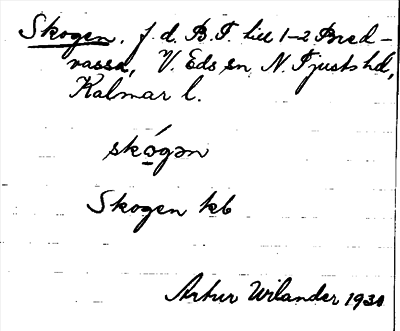 Skogen, f. d. B. T. till 1-2 Bred-
vassa, V. Eds sn N. Tjusts hd,
Kalmar l.
skógən
Skogen kb
Artur Wilander 1930